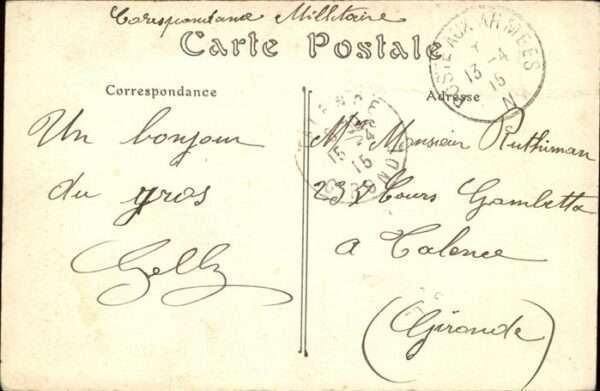 Correspondance Millitaire
Carte Postale
Correspondance
Adresse
Un bonjour
du gros
Gelly
Monsieur Ruthiman
237 Cours Gambetta
a Talence
(Gironde)
POSTE AUX ARMEES
13 -4
15
TALENCE
15 -4
15
GIRONDE